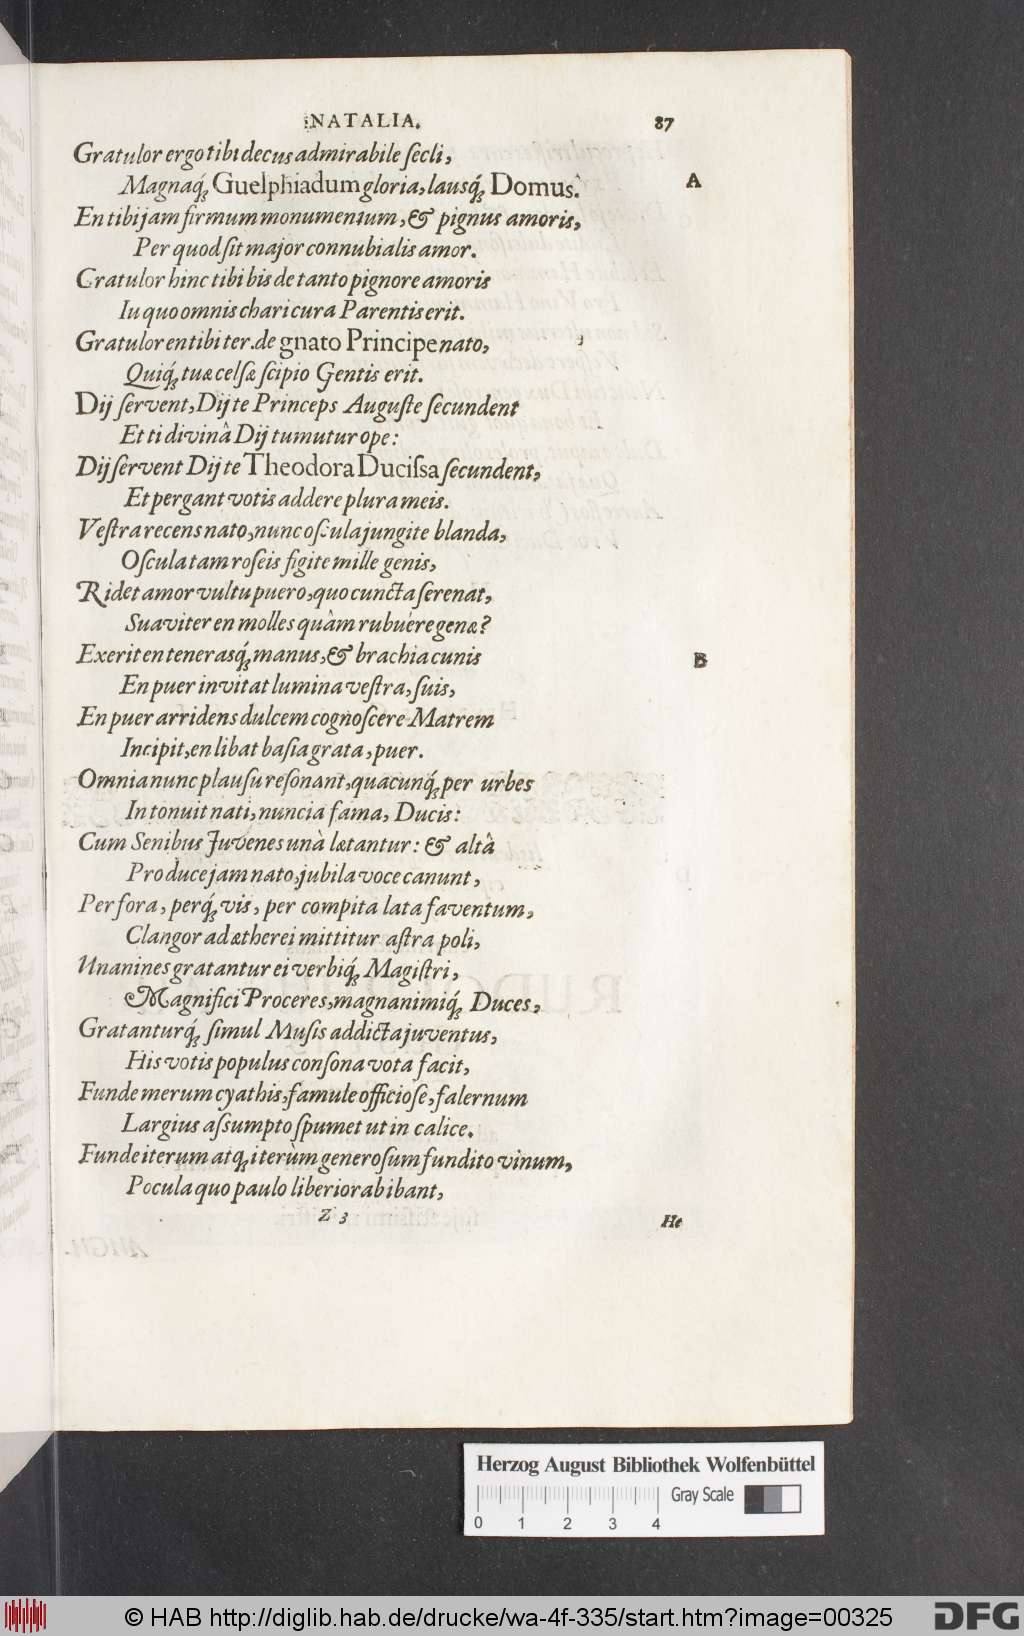 NATALIA. 87
Gratulor ergo tibi decus admirabile ſecli,
Magnaq́; Guelphiadum gloria, lausq́; Domus. A
En tibi jam firmum monumentum, & pignus amoris,
Per quod ſit major connubialis amor.
Gratulor hinc tibi bis de tanto pignore amoris
Iu quo omnis chari cura Parentis erit.
Gratulor en tibi ter. de gnato Principe nato,
Quiq́; tuæ celſæ ſcipio Gentis erit.
Dij ſervent, Dij te Princeps Auguſte ſecundent
Et ti divinâ Dij tumutur ope:
Dij ſervent Dij te Theodora Duciſsa ſecundent,
Et pergant votis addere plura meis.
Veſtra recens nato, nunc oſcula jungite blanda,
Oſcula tam roſeis figite mille genis,
Ridet amor vultu puero, quo cuncta ſerenat,
Suaviter en molles quàm rubuére genæ?
Exerit en tenerasq́; manus, & brachia cunis B
En puer invitat lumina veſtra, ſuis,
En puer arridens dulcem cognoſcere Matrem
Incipit, en libat baſia grata, puer.
Omnia nunc plauſu reſonant, quacunq́; per urbes
Intonuit nati, nuncia fama, Ducis:
Cum Senibus Juvenes unà lætantur: & altâ
Pro duce jam nato, jubila voce canunt,
Per fora, perq́; vis, per compita lata faventum,
Clangor ad ætherei mittitur aſtra poli,
Unanines gratantur ei verbiq́; Magiſtri,
Magnifici Proceres, magnanimiq́; Duces,
Gratanturq́; ſimul Muſis addicta juventus,
His votis populus conſona vota facit,
Funde merum cyathis, famule officioſe, falernum
Largius aſsumpto ſpumet ut in calice.
Funde iterum atq; iterùm generoſum fundito vinum,
Pocula quo paulo liberiora bibant,
Z 3 He
Herzog August Bibliothek Wolfenbüttel
Gray Scale
0 1 2 3 4
© HAB http://diglib.hab.de/drucke/wa-4f-335/start.htm?image=00325
DFG